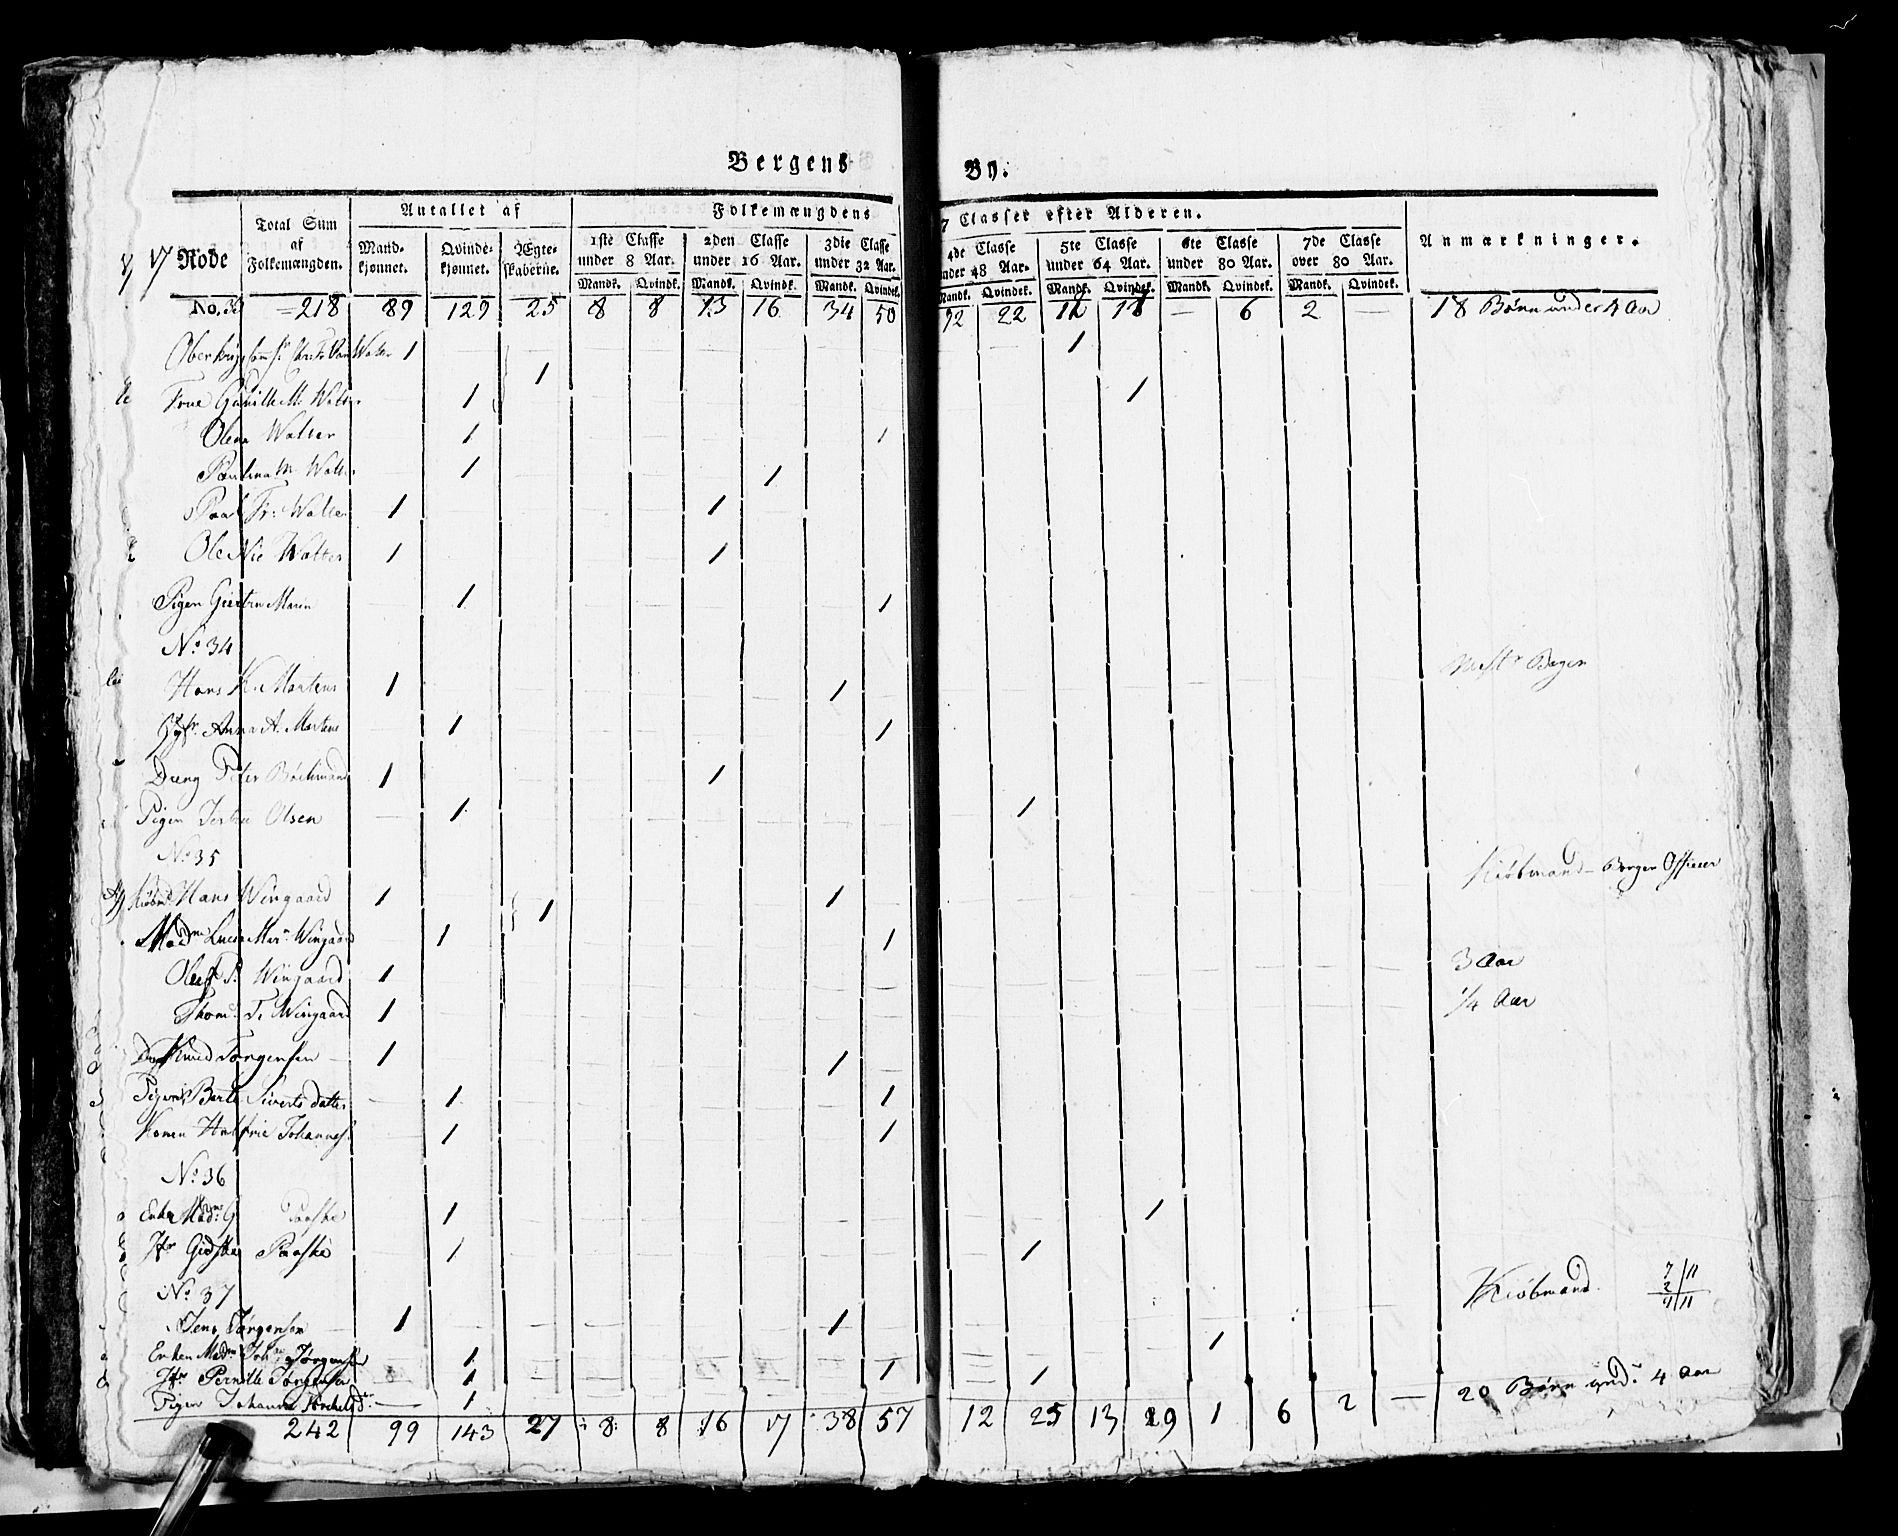 Bergens By.
17 Rode
Total Sum af Folkemængden.
Antallet af
Mandkjønnet. Qvindekjønnet. Ægteskaberne.
Folkemængdens 7 Classer efter Alderen.
1ste Classe under 8 Aar. 2den Classe under 16 Aar. 3die Classe under 32 Aar. 4de Classe under 48 Aar. 5te Classe under 64 Aar. 6te Classe under 80 Aar. 7de Classe over 80 Aar.
Mandk. Qvindk. Mandk. Qvindk. Mandk. Qvindek. Mandk. Qvindek. Mandk. Qvindek. Mandk. Qvindek. Mandk. Qvindek.
Anmærkninger.
=218 89 129 25 8 8 13 16 34 50 12 22 — 6 2 — 18 Børn under 4 Aar
Walter 1 1
1
Frue Walter 1 1
Olena Walter 1 1
M. Walter 1 1
Paal Fr: Walter 1 1
Ole Nic Walter 1 1
Pigen Marin 1 1
No. 34
Hans Martens 1 1
Anna A. Martens 1 1
Dreng Peter 1 1
Pigen Olsen 1 1
No 35
Kiøbmd Hans Wingaard 1 1 1 Kiøbmand – Borger Officier
Madme Wingaard 1 1
Wingaard 1 3 Aar
Thom. Wingaard 1 1/4 Aar
Knud Jørgensen 1 1
Pigen Berte Siverts datter 1 1
Konen Johannesd 1 1
No. 36
Enke Madme G Paaske 1 1
Jfr Gidske Paaske 1 1
No. 37
Jens Jørgensen 1 1 Kiøbmand.
Enken Madm Joh Jørgensen 1 1
Jfr Pernille Jørgensen 1 1
Pigen Johanna 1
242 99 143 27 8 8 16 17 38 57 12 25 13 19 1 6 2 — 20 Børn und. 4 Aar